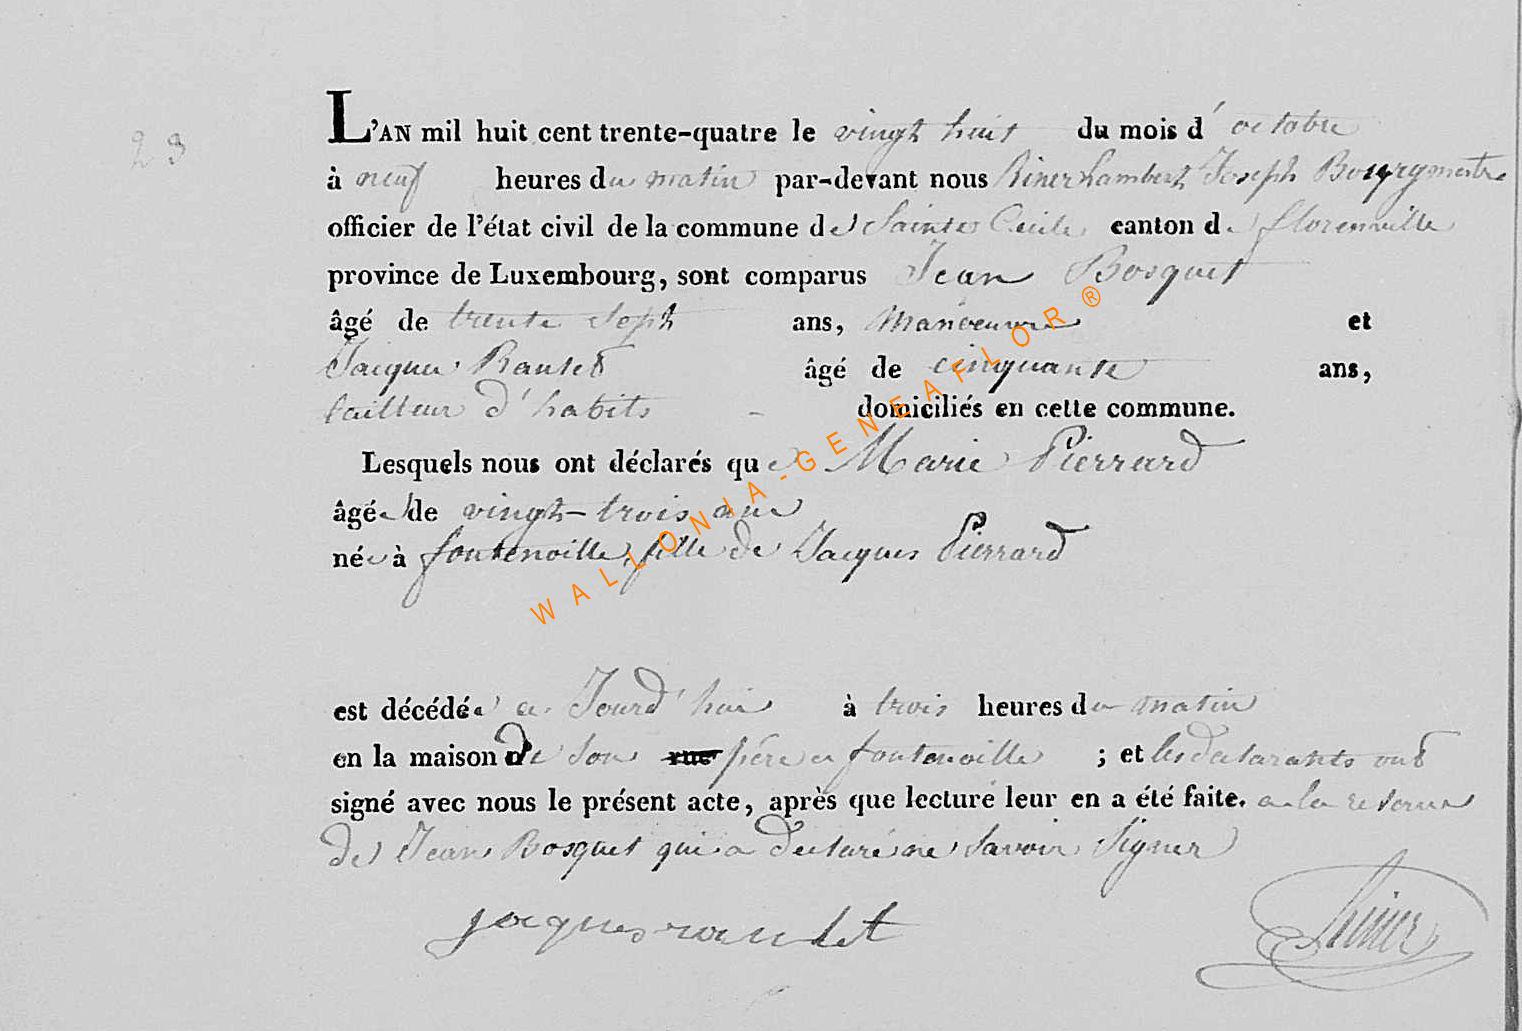 23
L'AN mil huit cent trente-quatre le vingt huit du mois d'octobre
à neuf heures du matin par-devant nous Riner Lambert Joseph Bourgmestre
officier de l'état civil de la commune de Sainte Cecile canton de florenville
province de Luxembourg, sont comparus Jean Bosquet
âgé de trente Seph ans, Manoeuvre et
Jacques Raulet âgé de cinquante ans,
tailleur d'habits - domiciliés en cette commune.
Lesquels nous ont déclarés que Marie Pierrard
âgée de vingt-trois ans
née à fontenoille, fille de Jacques Pierrard
est décédée ce Jourd'hui à trois heures du matin
en la maison de son rue père a fontenoille ; et les declarants ont
signé avec nous le présent acte, après que lecture leur en a été faite. a la reserve
de Jean Bosquet qui a declaré ne Savoir Signer
jacques raulet Riner
WALLONIA-GENEAFLOR ®